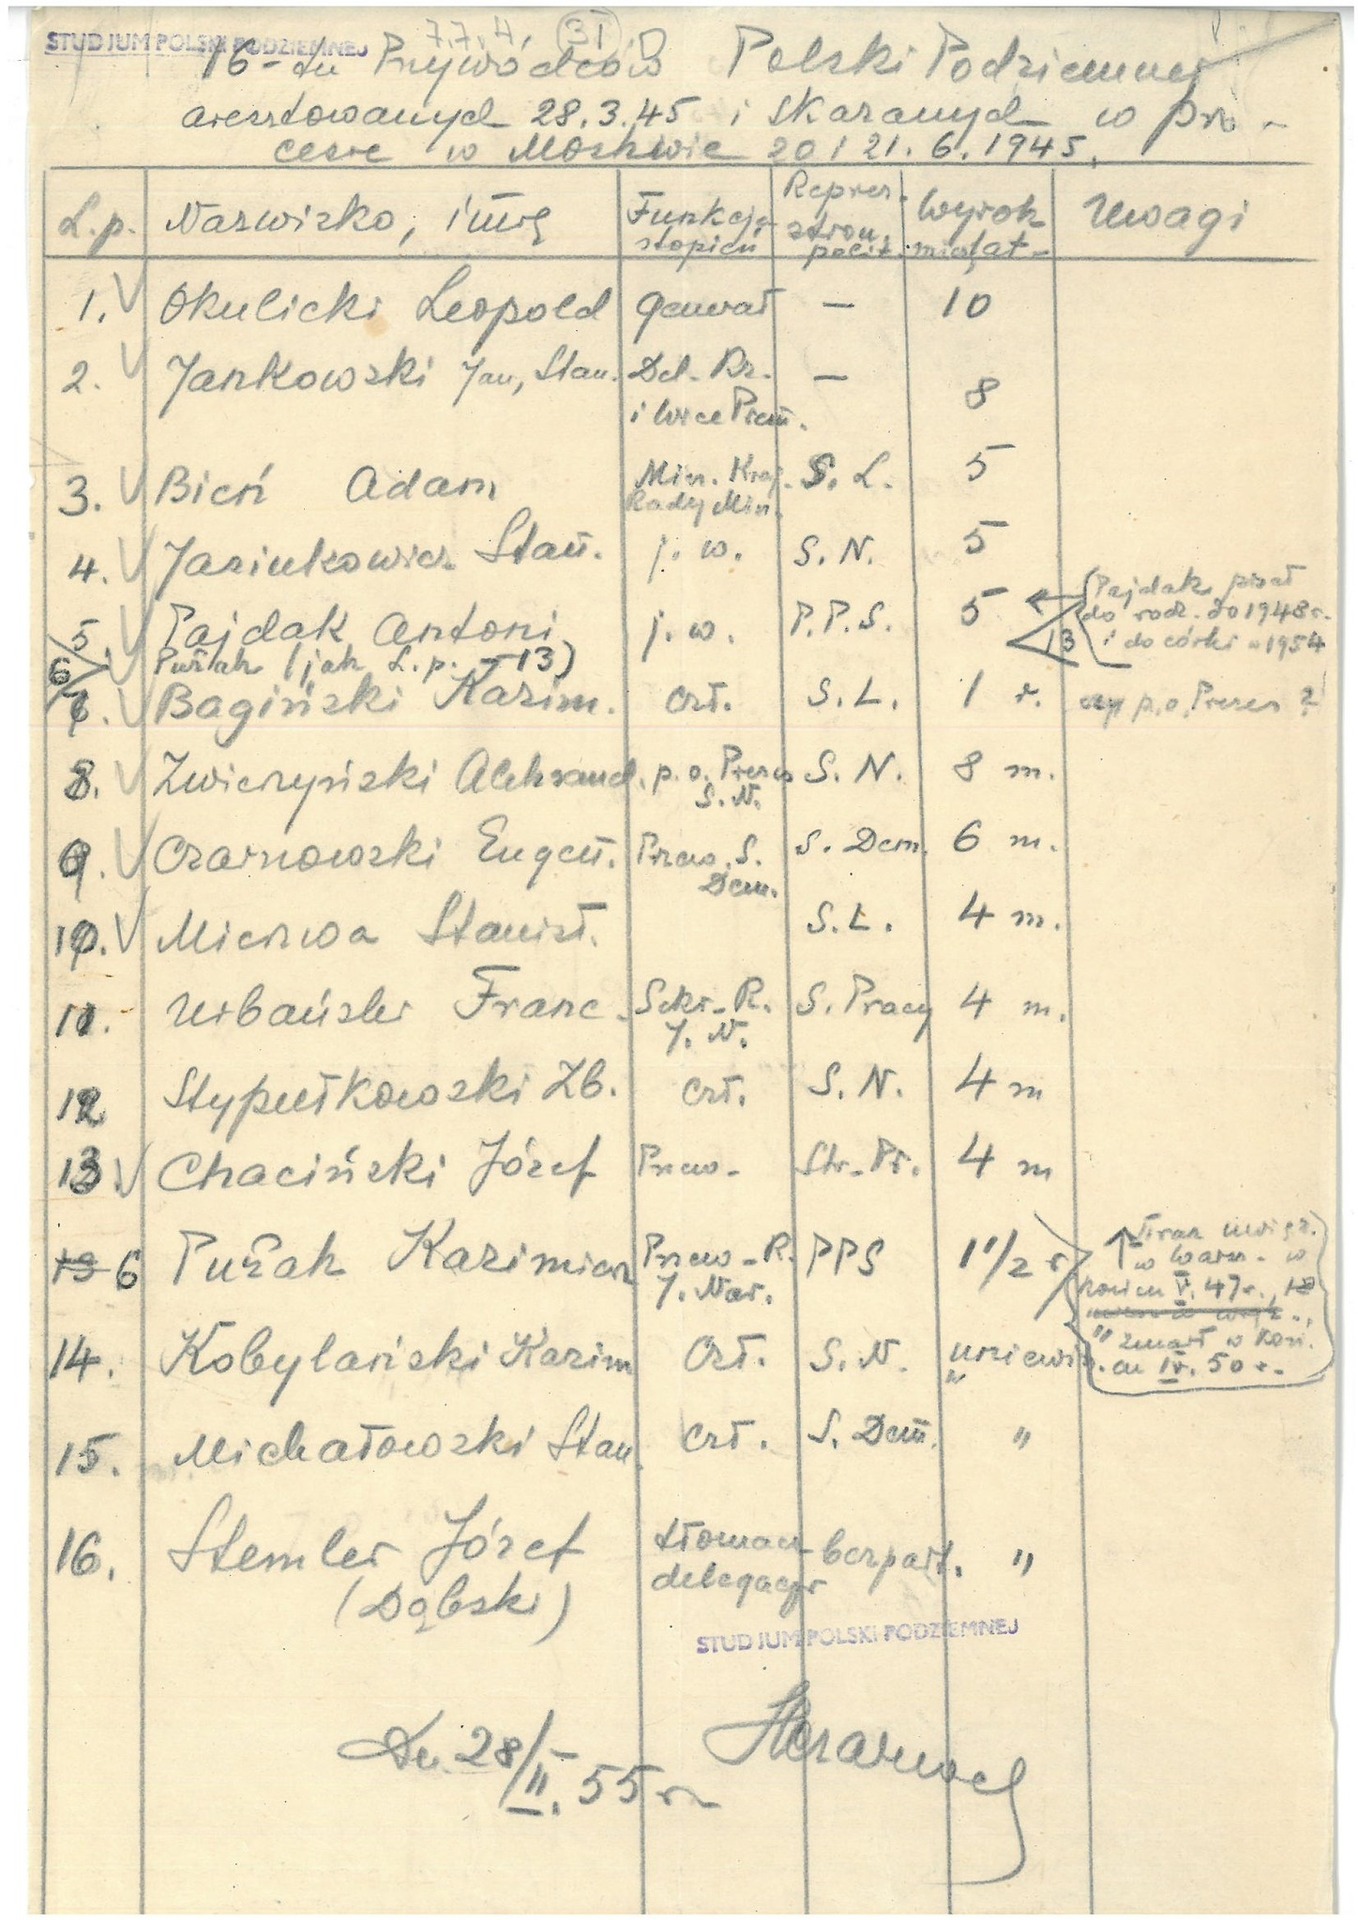 STUDJUM POLSKI PODZIEMNEJ
7.7.4. 31
16-tu Przywódców Polski Podziemnej
aresztowanych 28.3.45 i skazanych w pro-
cesie w Moskwie 20 i 21.6.1945.
L.p. Nazwisko, imię Funkcja stopień Reprez. stron. polit. Wyrok mies/lat Uwagi
1. Okulicki Leopold generał — 10
2. Jankowski Jan, Stan. Del. Rz. i Wice Prem. — 8
3. Bień Adam Min. Kraj. Rady Min. S. L. 5
4. Jasiukowicz Stan. j. w. S. N. 5
5. Pajdak Antoni j. w. P.P.S. 5 Pajdak pisał
do rodz. do 1948 r.
i do córki w 1954
6 Pużak (jak L.p. - 13) 13
7. Bagiński Kazim. czł. S. L. 1 r. czy p.o. Prezes ?
8. Zwierzyński Aleksand. p.o. Prezes S.N. S. N. 8 m.
9. Czarnowski Eugen. Przew. S. Dem. S. Dem. 6 m.
10. Mierzwa Stanisł. S.L. 4 m.
11. Urbański Franc. Sekr. R. J. N. S. Pracy 4 m.
12 Stypułkowski Zb. czł. S. N. 4 m
13. Chaciński Józef Przew. Str. Pr. 4 m
13 6 Pużak Kazimierz Przew. R. J. Nar. PPS 1 1/2 r
uwięz.
w Warsz. w
końcu V. 47 r.,
zmarł w koń.
cu IV. 50 r.
14. Kobylański Kazim czł. S. N. uniewin.
15. Michałowski Stan. czł. S. Dem. "
16. Stemler Józef tłomacz delegacji bezpart. "
(Dąbski)
STUDJUM POLSKI PODZIEMNEJ
Dn. 28/II. 55 r.